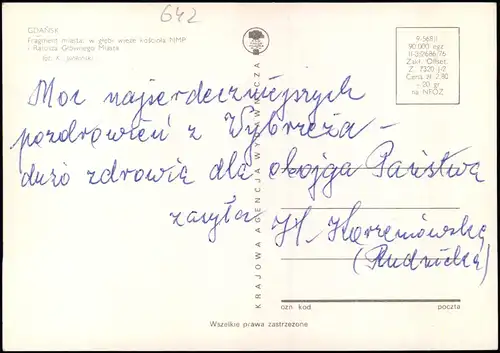 642
GDAŃSK
Fragment miasta: w głębi wieże kościoła NMP
i Ratusza Głównego Miasta
fot. K. Jabłoński
9-568 II
90.000 egz
II-2/2686/76
Zakł. Offset.
Z. 7320 J-2
Cena zł 2,80
+ 20 gr
na NFOZ
Moc najserdeczniejszych
pozdrowień z Wybrzeża –
dużo zdrowia dla obojga Państwa
zasyła H. Korzeniowska
(Rudnicka)
KRAJOWA AGENCJA WYDAWNICZA
ozn. kod
poczta
Wszelkie prawa zastrzeżone